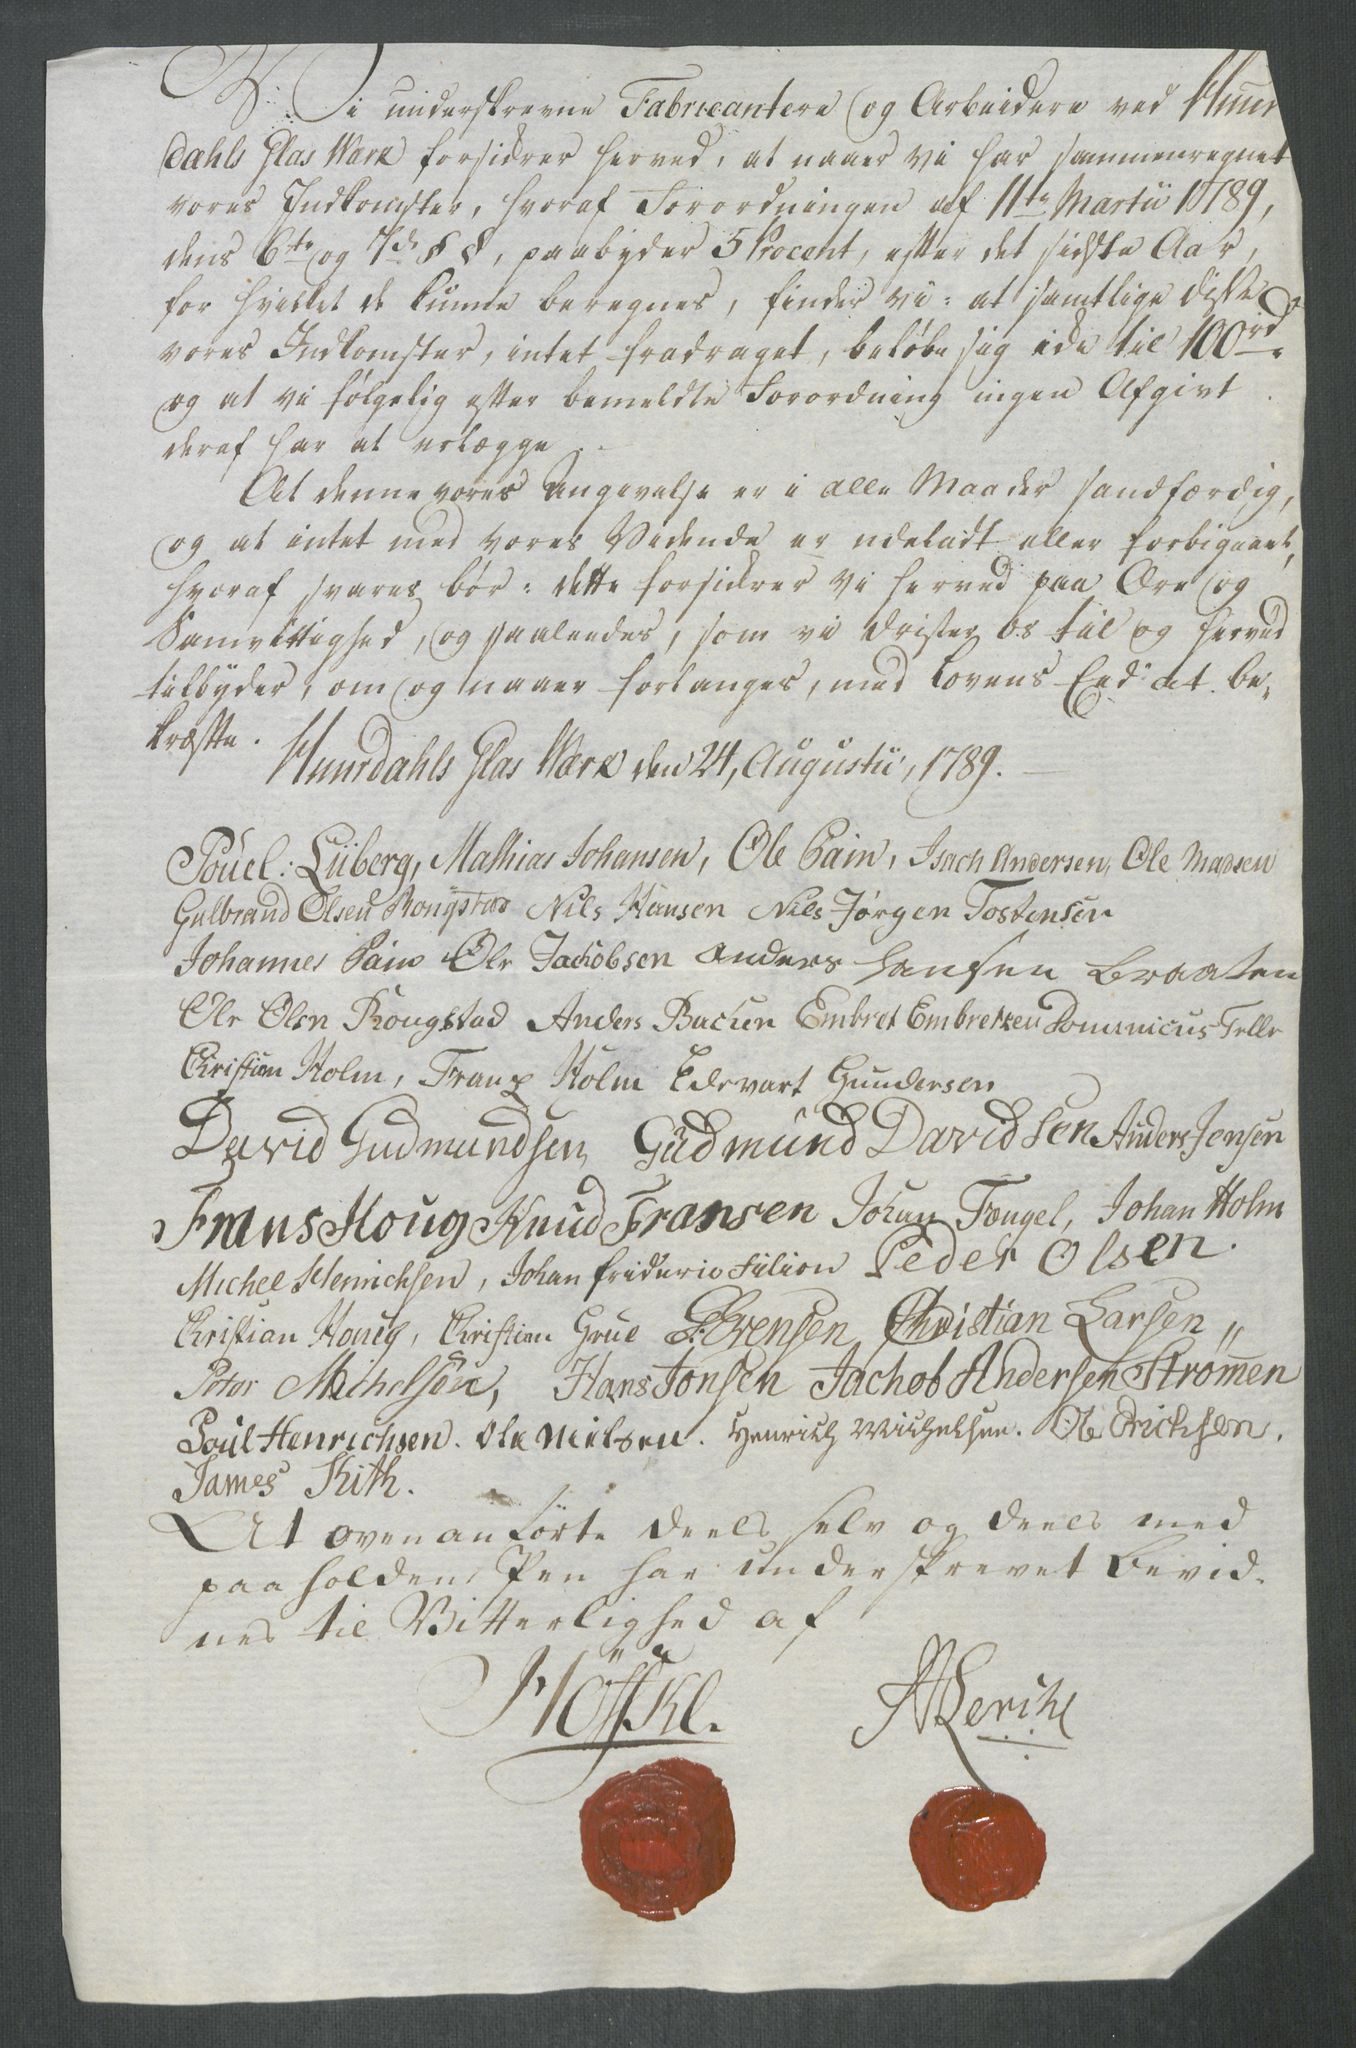 Vi underskrevne Fabricantere og Arbeidere ved Huur
dahls Glas Værk forsikrer herved, at naaer vi har sammenregnet
vores Indkomster, hvoraf Forordningen af 11te Martii 1789,
dens 6te og 7de § §, paabyder 5 Procent, efter det sidste Aar,
for hvilket de kunne beregnes, finder vi: at samtlige disse
vores Indkomster, intet fradraget, beløbe sig icke til 100 rd
og at vi følgelig efter bemeldte Forordning ingen Afgivt
deraf har at erlægge.
At denne vores Angivelse er i alle Maader sandfærdig,
og at intet med vores Vidende er udeladt eller forbigaaet,
hvoraf svares bør: dette forsikrer vi herved paa Ære og
Samvittighed, og saaleedes, som vi drister os til og herved
tilbyder, om og naaer forlanges, med Lovens Eed at be-
kræfte.
Huurdahls Glas Værk den 24, Augustii, 1789.
Pouel: Lüberg, Mathias Johansen, Ole Pain, Isach Andersen, Ole Madsen
Gulbrand Olsen Rongstad Nils Hansen Nils Jørgen Tostensen
Johannes Pain Ole Jachobsen Anders Hansen Braaten
Ole Olsn Rongstad Anders Backen Embret Embretsen Dominicus Felle
Christian Holm, Franz Holm Edevart Gundersen
David Gudmundsen, Gudmund Davidsen Anders Jensen
Frans Houg Knud Fransen Johan Fengel, Johan Holm
Michel Henrichsen, Johan frideric Filion Peder Olsen.
Christian Houg, Christian Grue Sørensen, Christian Larsen,,
Peter Michelsen, Hans Jonsen Jachob Andersen Strømmen
Poul Henrichsen. Ole Nielsen. Henrich Michelsen. Ole Erichsen.
James Kith.
At ovenanførte deels selv og deels med
paaholden Pen har underskrevet bevid-
nes til Vitterlighed af